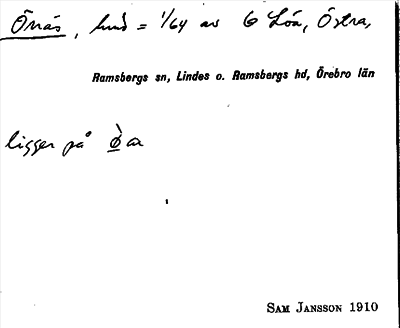 Örnäs, hmd = 1/64 av G Löa, Östra,
Ramsbergs sn, Lindes o. Ramsbergs hd, Örebro län
ligger på ö̀ar
SAM JANSSON 1910